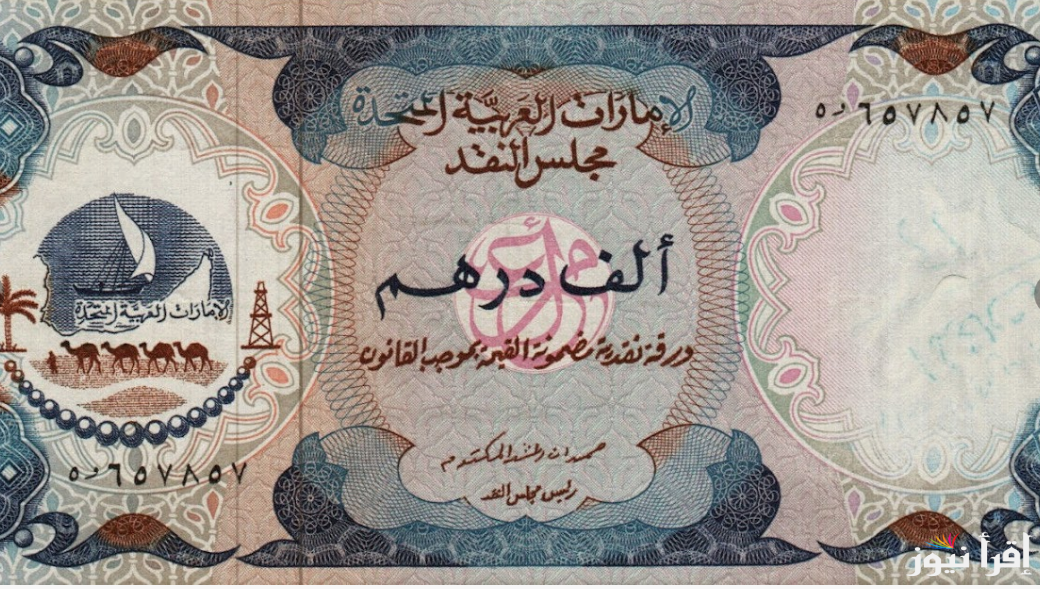 الإمارات العربيّة المتّحدة
مجلس النقد
٥ر٦٥٧٨٥٧
ألف درهم
ورقة نقدية مضمونة القيمة بموجب القانون
الإمارات العربيّة المتّحدة
٥ر٦٥٧٨٥٧
رئيس مجلس النقد
إقرأ نيوز